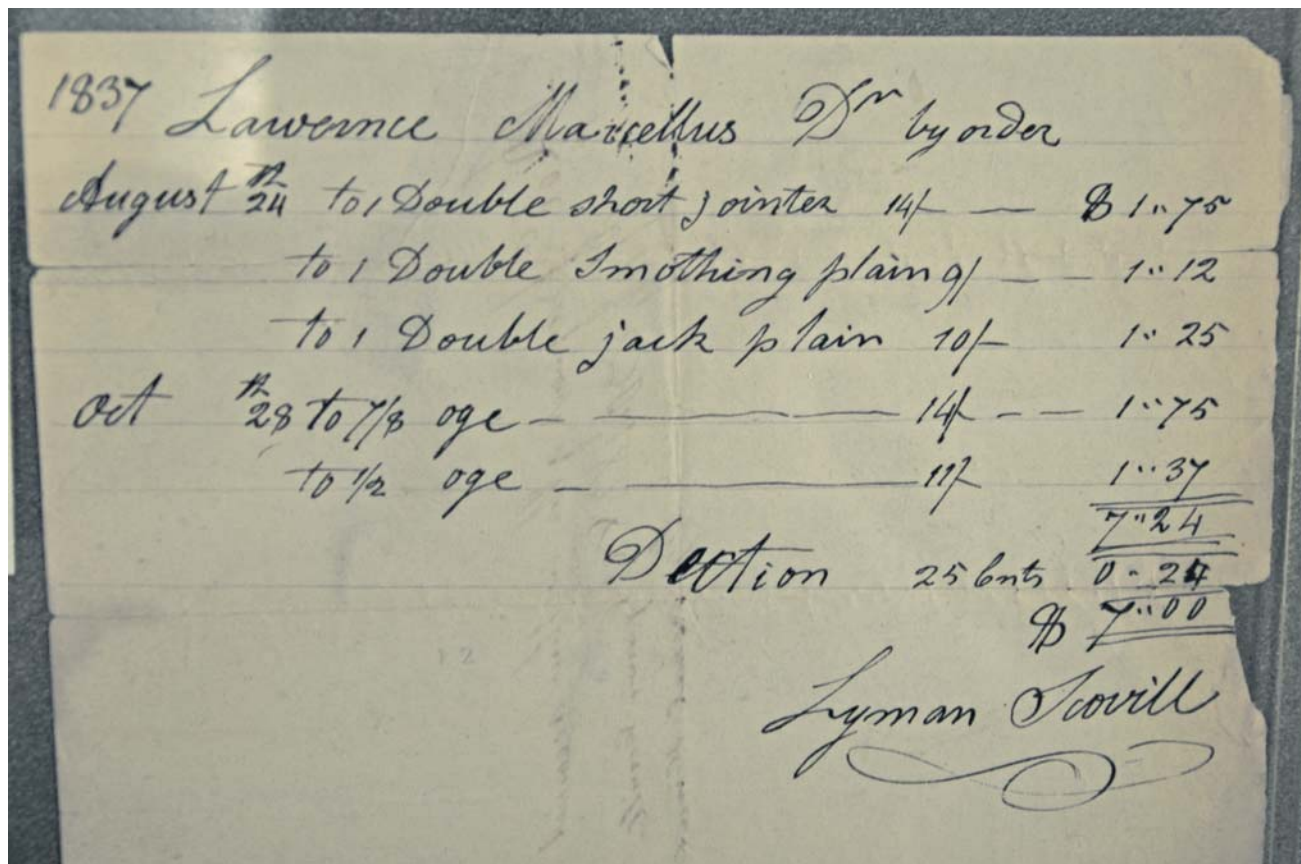 1837 Lawernce Marcellus Dr by order
August 24th to 1 Double short jointer 14/- — $ 1"75
to 1 Double Smothing plain 9/ — — 1"12
to 1 Double jack plain 10/- 1"25
Oct 28th to 7/8 oge — —— 14/- — — 1"75
to 1/2 oge — —— 11/- 1"37
7"24
Dection 25 Cnts 0-24
$ 7"00
Lyman Scovill
12